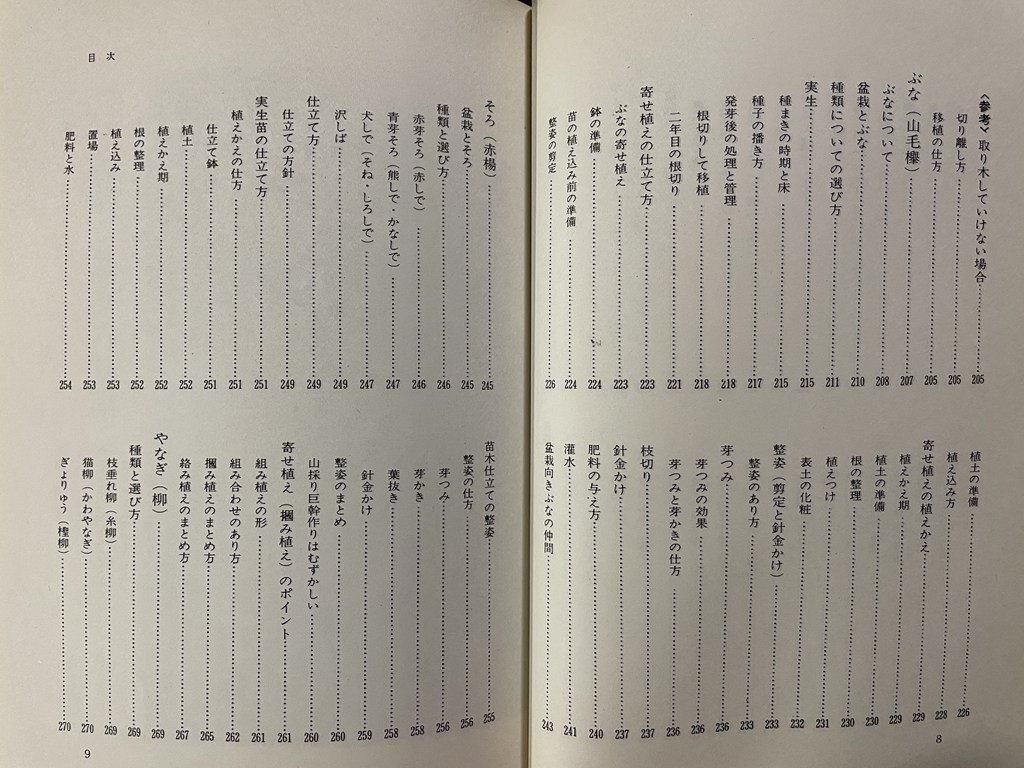 〈参考〉取り木していけない場合 205
切り離し方 205
移植の仕方 205
ぶな（山毛欅） 207
ぶなについて 208
盆栽とぶな 210
種類についての選び方 211
実生 215
種まきの時期と床 215
種子の播き方 217
発芽後の処理と管理 218
根切りして移植 218
二年目の根切り 221
寄せ植えの仕立て方 223
ぶなの寄せ植え 223
鉢の準備 224
苗の植え込み前の準備 224
整姿の剪定 226
植土の準備 226
植え込み方 228
寄せ植えの植えかえ 229
植えかえ期 229
植土の準備 230
根の整理 230
植えつけ 231
表土の化粧 232
整姿（剪定と針金かけ） 233
整姿のあり方 233
芽つみ 236
芽つみの効果 236
芽つみと芽かきの仕方 236
枝切り 237
針金かけ 237
肥料の与え方 240
灌水 241
盆栽向きぶなの仲間 243
8
目次
そろ（赤楊） 245
盆栽とそろ 245
種類と選び方 246
赤芽そろ（赤しで） 246
青芽そろ（熊しで・かなしで） 247
犬しで（そね・しろしで） 247
沢しば 249
仕立て方 249
仕立ての方針 249
実生苗の仕立て方 251
植えかえの仕方 251
仕立て鉢 251
植土 252
植えかえ期 252
根の整理 252
植え込み 253
置場 253
肥料と水 254
苗木仕立ての整姿 255
整姿の仕方 256
芽つみ 256
芽かき 258
葉抜き 258
針金かけ 259
整姿のまとめ 260
山採り巨幹作りはむずかしい 260
寄せ植え（摑み植え）のポイント 261
組み植えの形 261
組み合わせのあり方 262
摑み植えのまとめ方 265
絡み植えのまとめ方 267
やなぎ（柳） 269
種類と選び方 269
枝垂れ柳（糸柳） 269
猫柳（かわやなぎ） 270
ぎょりゅう（檉柳） 270
9